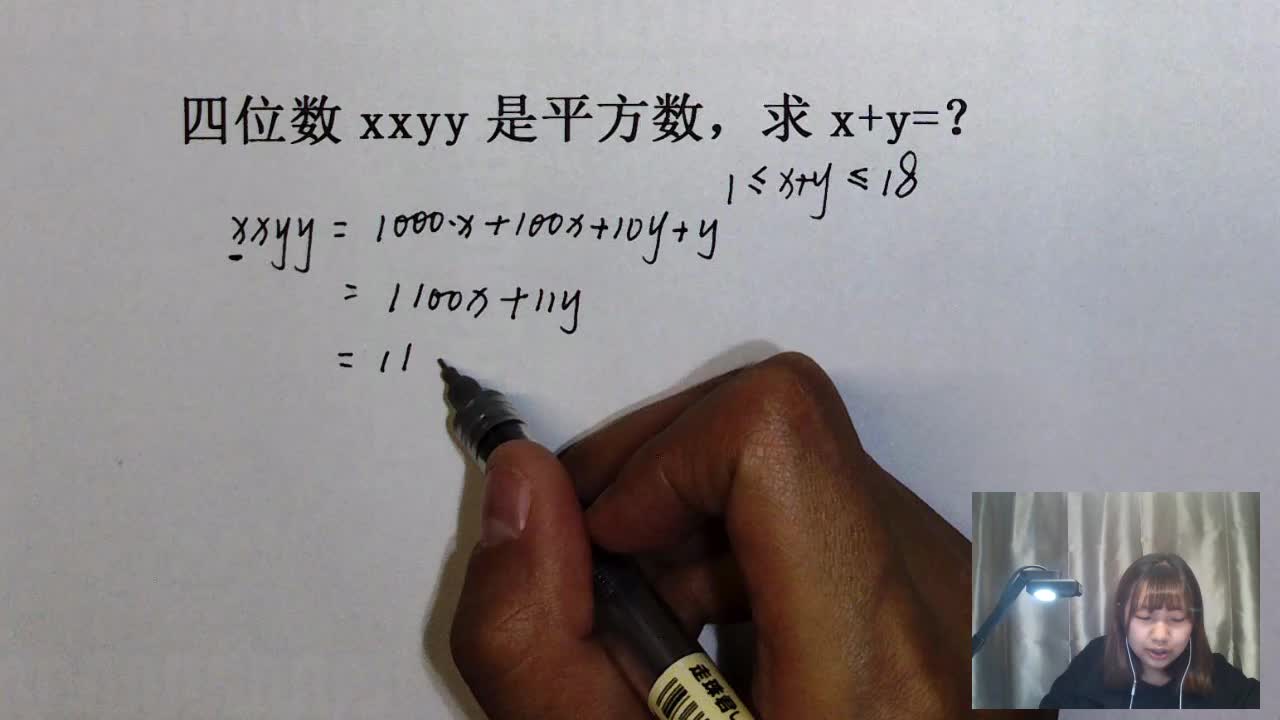 四位数 xxyy 是平方数，求 x+y=？
1 ≤ x+y ≤ 18
xxyy = 1000·x+100x+10y+y
= 1100x+11y
= 11
走珠君